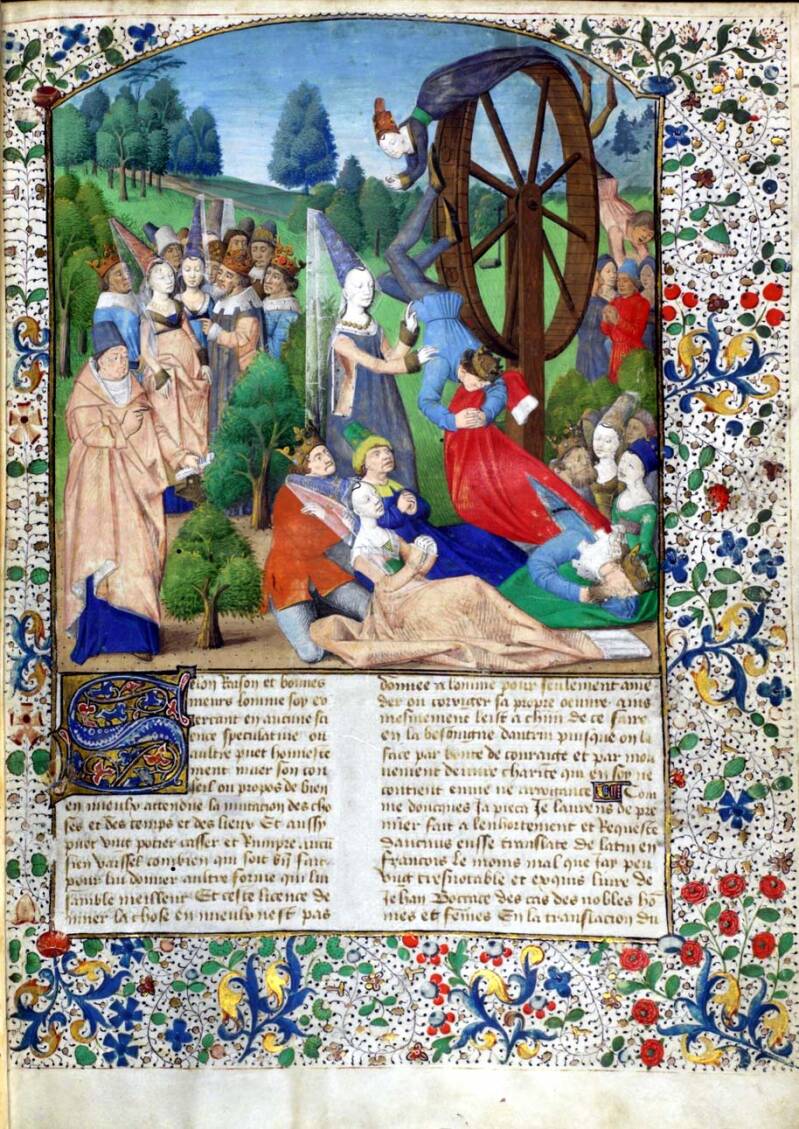 Selon Raison et bonnes
meurs lomme soy ex
ercant en aucune sci
ence speculative ou
aultre puet honneste
ment muer son con
seil ou propos de bien
en mieulx attendue la mutation des cho
ses et des temps et des lieux Et aussy
puet ung potier casser et Rompre aucu
sien vaissel combien qui soit bn̄ fait
pour lui donner aultre forme qui lui
samble meilleur Et ceste licence de
muer la chose en mieulx nest pas
donnee a lomme pour seulement ame
der ou corriger sa propre oeuvre ains
mesmement leist a chūn de ce faire
en la besoingne dautrui puisque on la
face par bonte de couraige et par mou
uement de vraye charite qui en soy ne
contient enuie ne arrogance Com
me doncques Ja pieca Je laurens de pre
mier fait a lenhortement et Requeste
daucuns eusse translate de latin en
francois le moins mal que Jay peu
ung tresnotable et exquis liure de
Jehan Boccace des cas des nobles hō
mes et femes En la translacion du